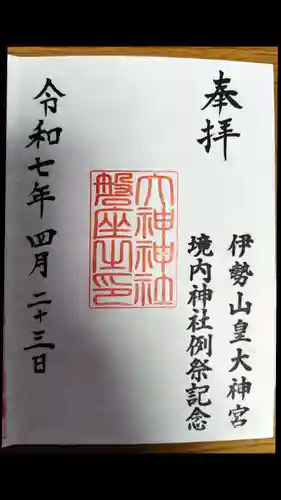 奉拝
伊勢山皇大神宮
境内神社例祭記念
大神神社
磐座之印
令和七年四月二十三日